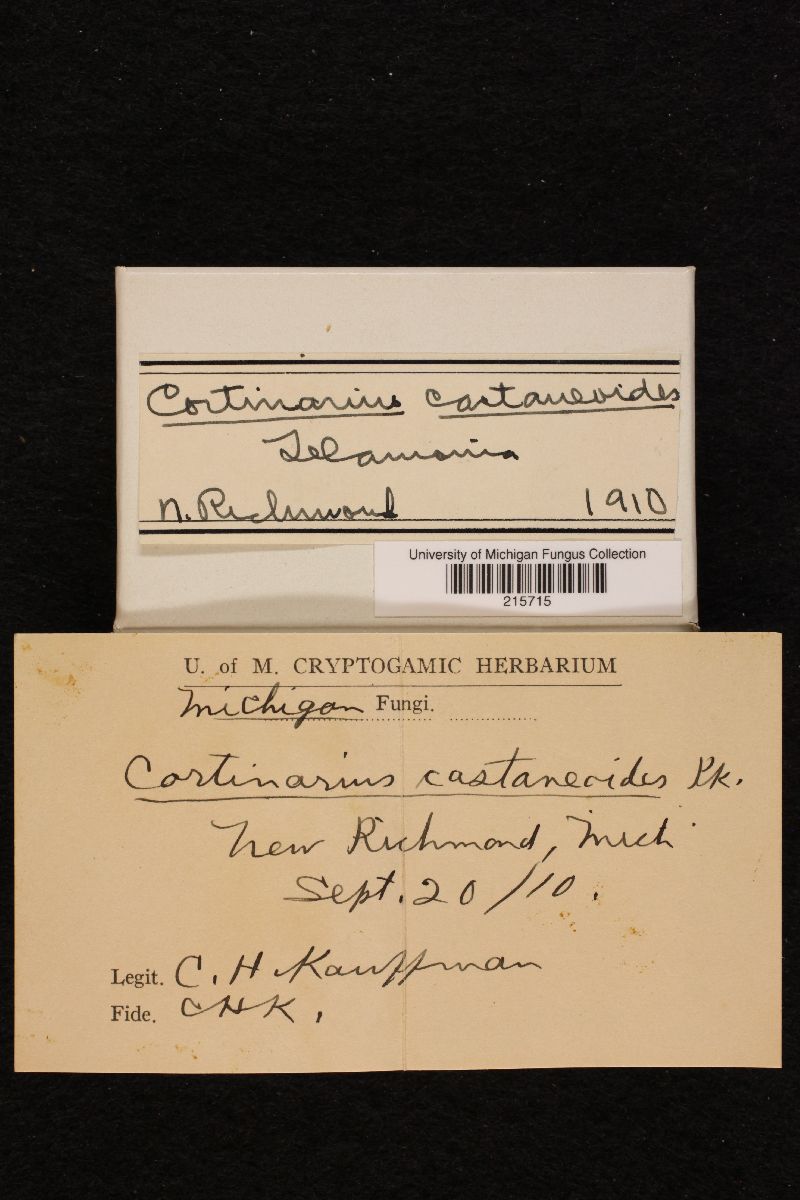 Cortinarius castaneoides
Telamonia
N. Richmond 1910
University of Michigan Fungus Collection
215715
U. of M. CRYPTOGAMIC HERBARIUM
Michigan Fungi.
Cortinarius castaneoides Pk.
New Richmond, Mich.
Sept. 20/10.
Legit. C. H. Kauffman
Fide. CHK.